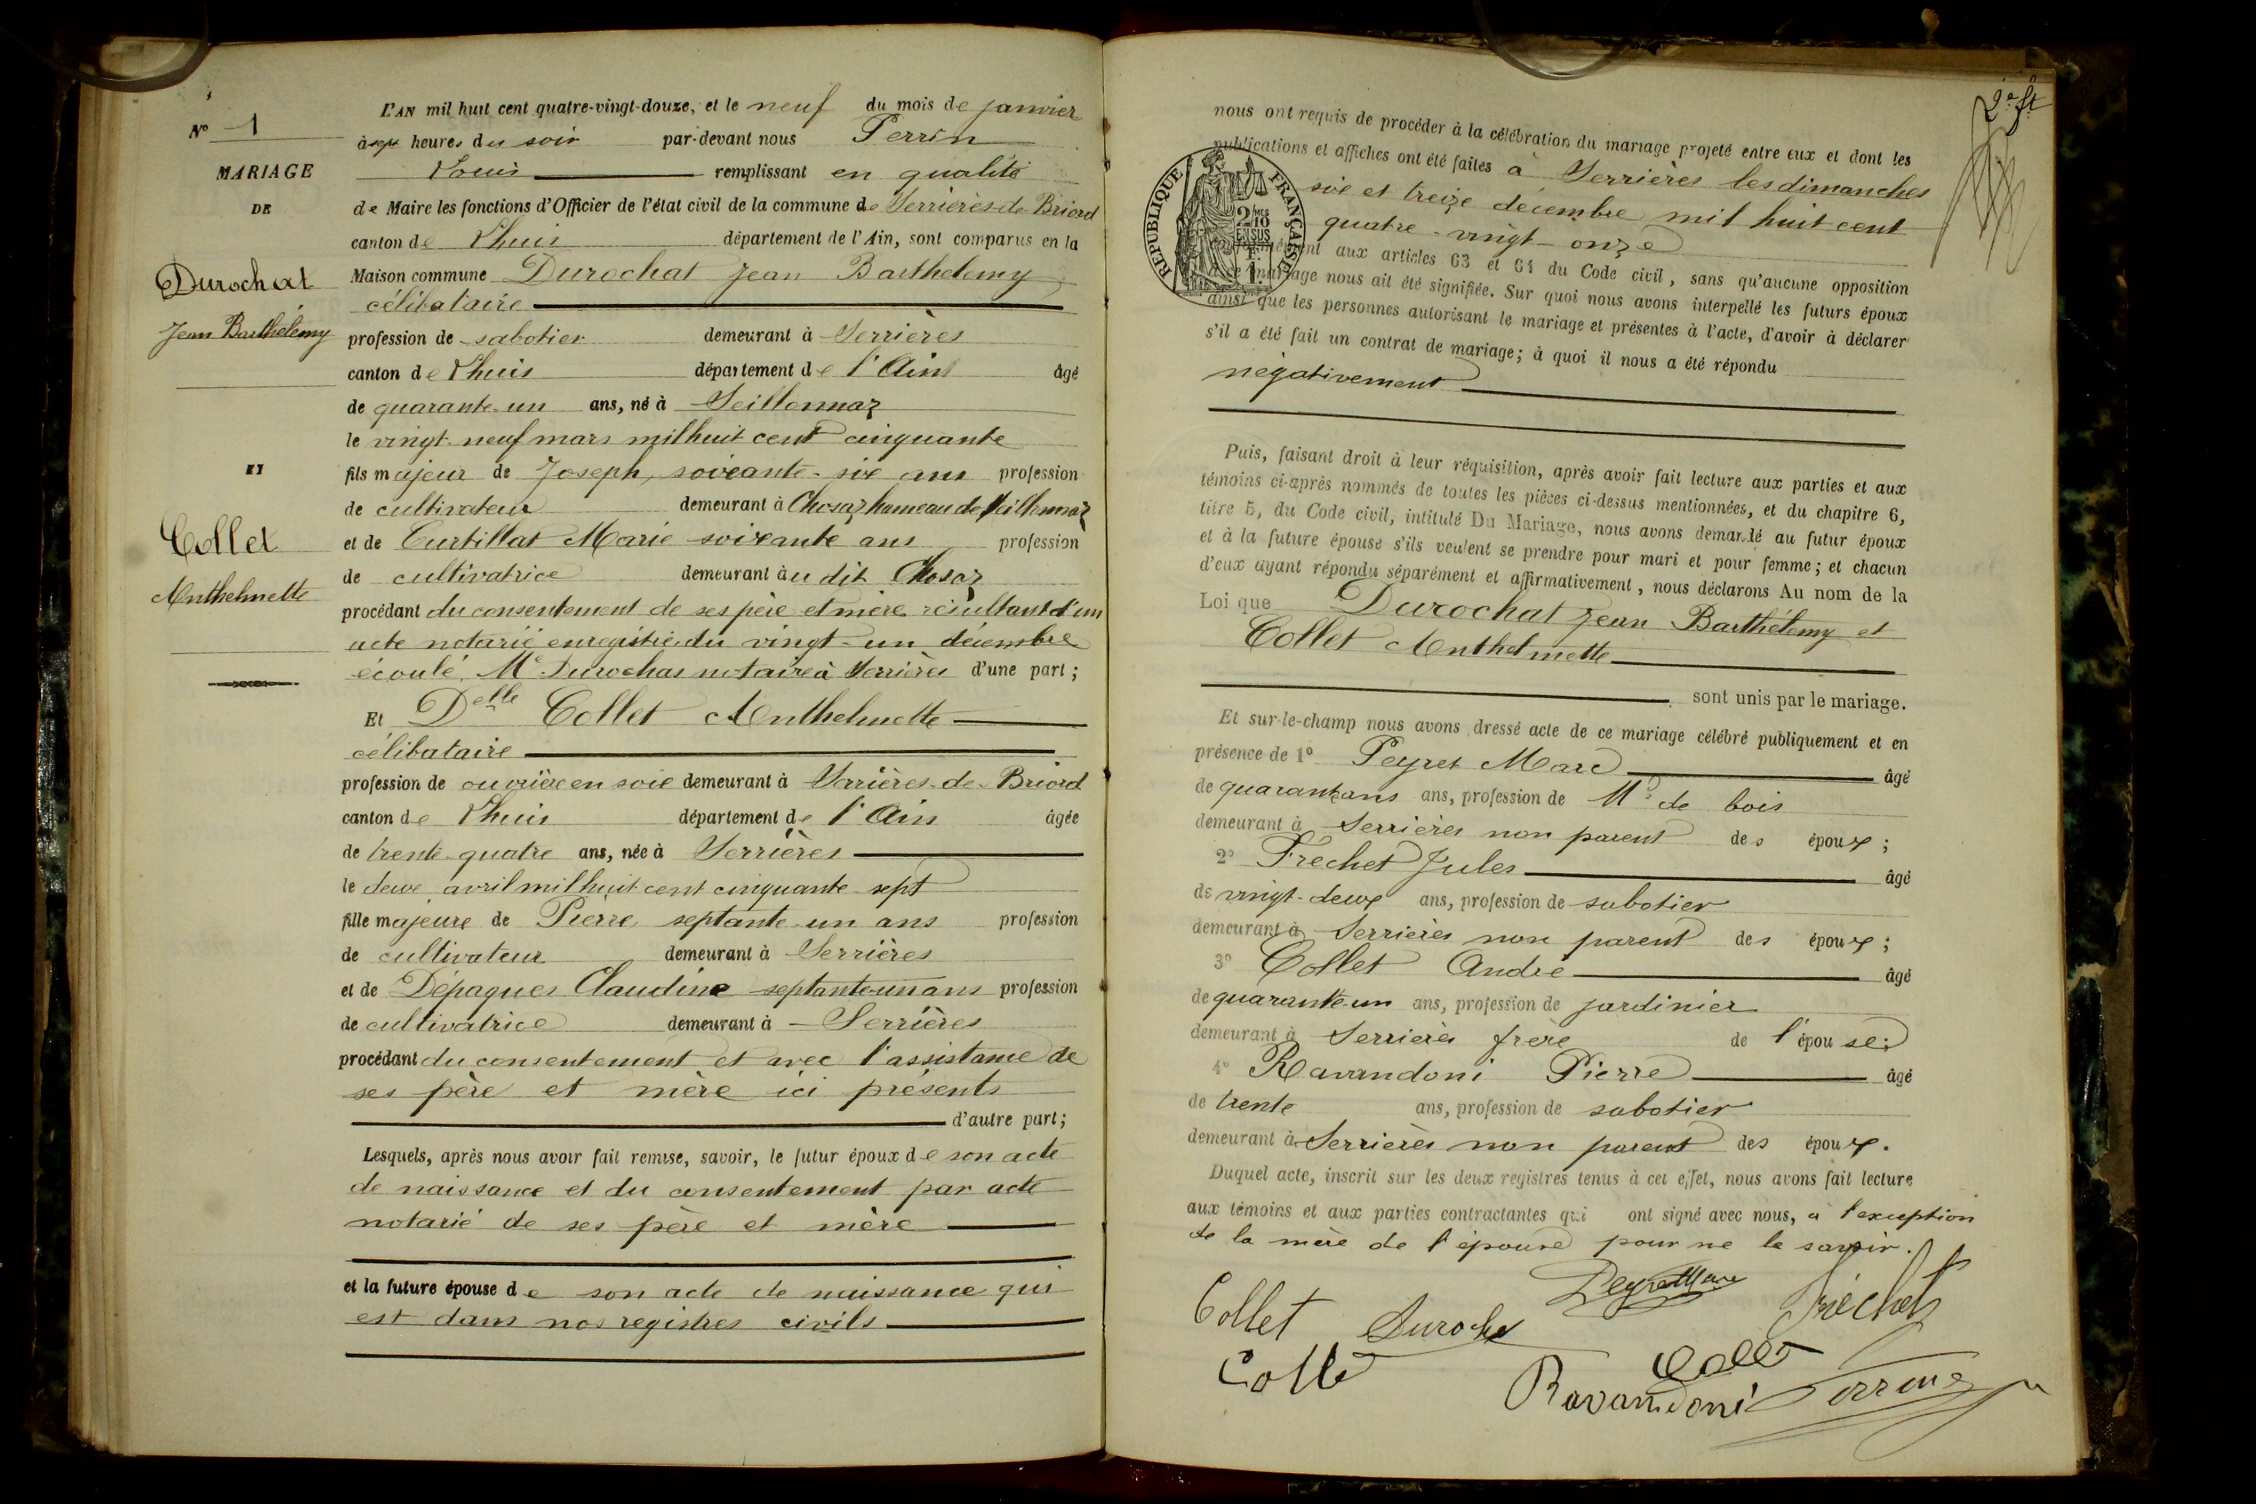 N° 1
MARIAGE
DE
Durochat
Jean Barthélemy
ET
Collet
Anthelmette
L'AN mil huit cent quatre-vingt-douze, et le neuf du mois de janvier
à sept heures du soir par-devant nous Perrin
Louis remplissant en qualité
de Maire les fonctions d'Officier de l'état civil de la commune de Serrières-de-Briord
canton de Lhuis département de l'Ain, sont comparus en la
Maison commune Durochat Jean Barthelemy
célibataire
profession de sabotier demeurant à Serrières
canton de Lhuis département de l'Ain âgé
de quarante-un ans, né à Seillonnaz
le vingt-neuf mars mil huit cent cinquante
fils majeur de Joseph, soixante-six ans profession
de cultivateur demeurant à Chosaz hameau de Seillonnaz
et de Curtillat Marie soixante ans profession
de cultivatrice demeurant àu dit Chosaz
procédant du consentement de ses père et mère résultant d'un
acte notarié enregistré du vingt-un décembre
écoulé, Me Durochat notaire à Serrières d'une part;
Et Delle Collet Anthelmette
célibataire
profession de ouvrière en soie demeurant à Serrières-de-Briord
canton de Lhuis département de l'Ain âgée
de trente-quatre ans, née à Serrières
le deux avril mil huit cent cinquante-sept
fille majeure de Pierre septante-un ans profession
de cultivateur demeurant à Serrières
et de Dépagnes Claudine septante-un ans profession
de cultivatrice demeurant à Serrières
procédant du consentement et avec l'assistance de
ses père et mère ici présents
d'autre part;
Lesquels, après nous avoir fait remise, savoir, le futur époux de son acte
de naissance et du consentement par acte
notarié de ses père et mère
et la future épouse de son acte de naissance qui
est dans nos registres civils
2e ft
nous ont requis de procéder à la célébration du mariage projeté entre eux et dont les
publications et affiches ont été faites à Serrières les dimanches
six et treize décembre mil huit cent
quatre-vingt-onze
RÉPUBLIQUE FRANÇAISE
2/10 EN SUS
1 F.
aux articles 63 et 64 du Code civil, sans qu'aucune opposition
mariage nous ait été signifiée. Sur quoi nous avons interpellé les futurs époux
ainsi que les personnes autorisant le mariage et présentes à l'acte, d'avoir à déclarer
s'il a été fait un contrat de mariage; à quoi il nous a été répondu
négativement
Puis, faisant droit à leur réquisition, après avoir fait lecture aux parties et aux
témoins ci-après nommés de toutes les pièces ci-dessus mentionnées, et du chapitre 6,
titre 5, du Code civil, intitulé Du Mariage, nous avons demandé au futur époux
et à la future épouse s'ils veulent se prendre pour mari et pour femme; et chacun
d'eux ayant répondu séparément et affirmativement, nous déclarons Au nom de la
Loi que Durochat Jean Barthélemy et
Collet Anthelmette
sont unis par le mariage.
Et sur-le-champ nous avons dressé acte de ce mariage célébré publiquement et en
présence de 1° Peyret Marc âgé
de quarante ans ans, profession de Md de bois
demeurant à Serrières non parent des époux;
2° Frechet Jules âgé
de vingt-deux ans, profession de sabotier
demeurant à Serrières non parent des époux;
3° Collet André âgé
de quarante-un ans, profession de jardinier
demeurant à Serrières frère de l'épouse;
4° Ravandoni Pierre âgé
de trente ans, profession de sabotier
demeurant à Serrières non parent des époux.
Duquel acte, inscrit sur les deux registres tenus à cet effet, nous avons fait lecture
aux témoins et aux parties contractantes qui ont signé avec nous, à l'exception
de la mère de l'épouse pour ne le savoir.
Peyret Marc
Frèchet
Collet
Durochat
Collet
Collet
Ravandoni
Perrin